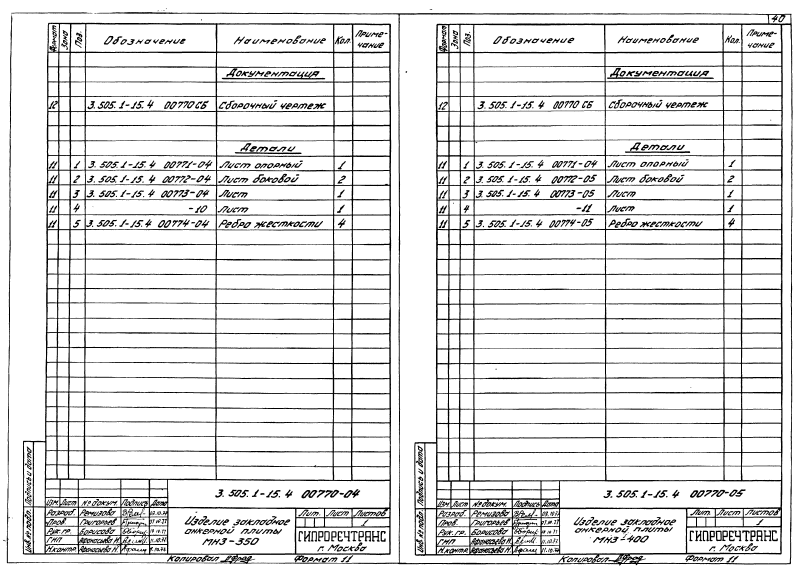 40
Формат Зона Поз. Обозначение Наименование Кол. Приме-
чание
Документация
12 3.505.1-15.4 00770 СБ Сборочный чертеж
Детали
11 1 3.505.1-15.4 00771-04 Лист опорный 1
11 2 3.505.1-15.4 00772-04 Лист боковой 2
11 3 3.505.1-15.4 00773-04 Лист 1
11 4 -10 Лист 1
11 5 3.505.1-15.4 00774-04 Ребро жесткости 4
3.505.1-15.4 00770-04
Изм Лист № докум. Подпись Дата
Разраб. Ремизова
Пров. Григорьев
Рук. гр. Борисова
ГИП
Н.контр.
Изделие закладное
анкерной плиты
МНЗ-350
Лит. Лист Листов
1
ГИПРОРЕЧТРАНС
г. Москва
Инв. № подл. Подпись и дата
Копировал Формат 11
Формат Зона Поз. Обозначение Наименование Кол. Приме-
чание
Документация
12 3.505.1-15.4 00770 СБ Сборочный чертеж
Детали
11 1 3.505.1-15.4 00771-04 Лист опорный 1
11 2 3.505.1-15.4 00772-05 Лист боковой 2
11 3 3.505.1-15.4 00773-05 Лист 1
11 4 -11 Лист 1
11 5 3.505.1-15.4 00774-05 Ребро жесткости 4
3.505.1-15.4 00770-05
Изм Лист № докум. Подпись Дата
Разраб. Ремизова
Пров. Григорьев
Рук. гр. Борисова
ГИП
Н.контр.
Изделие закладное
анкерной плиты
МНЗ-400
Лит. Лист Листов
1
ГИПРОРЕЧТРАНС
г. Москва
Инв. № подл. Подпись и дата
Копировал Формат 11